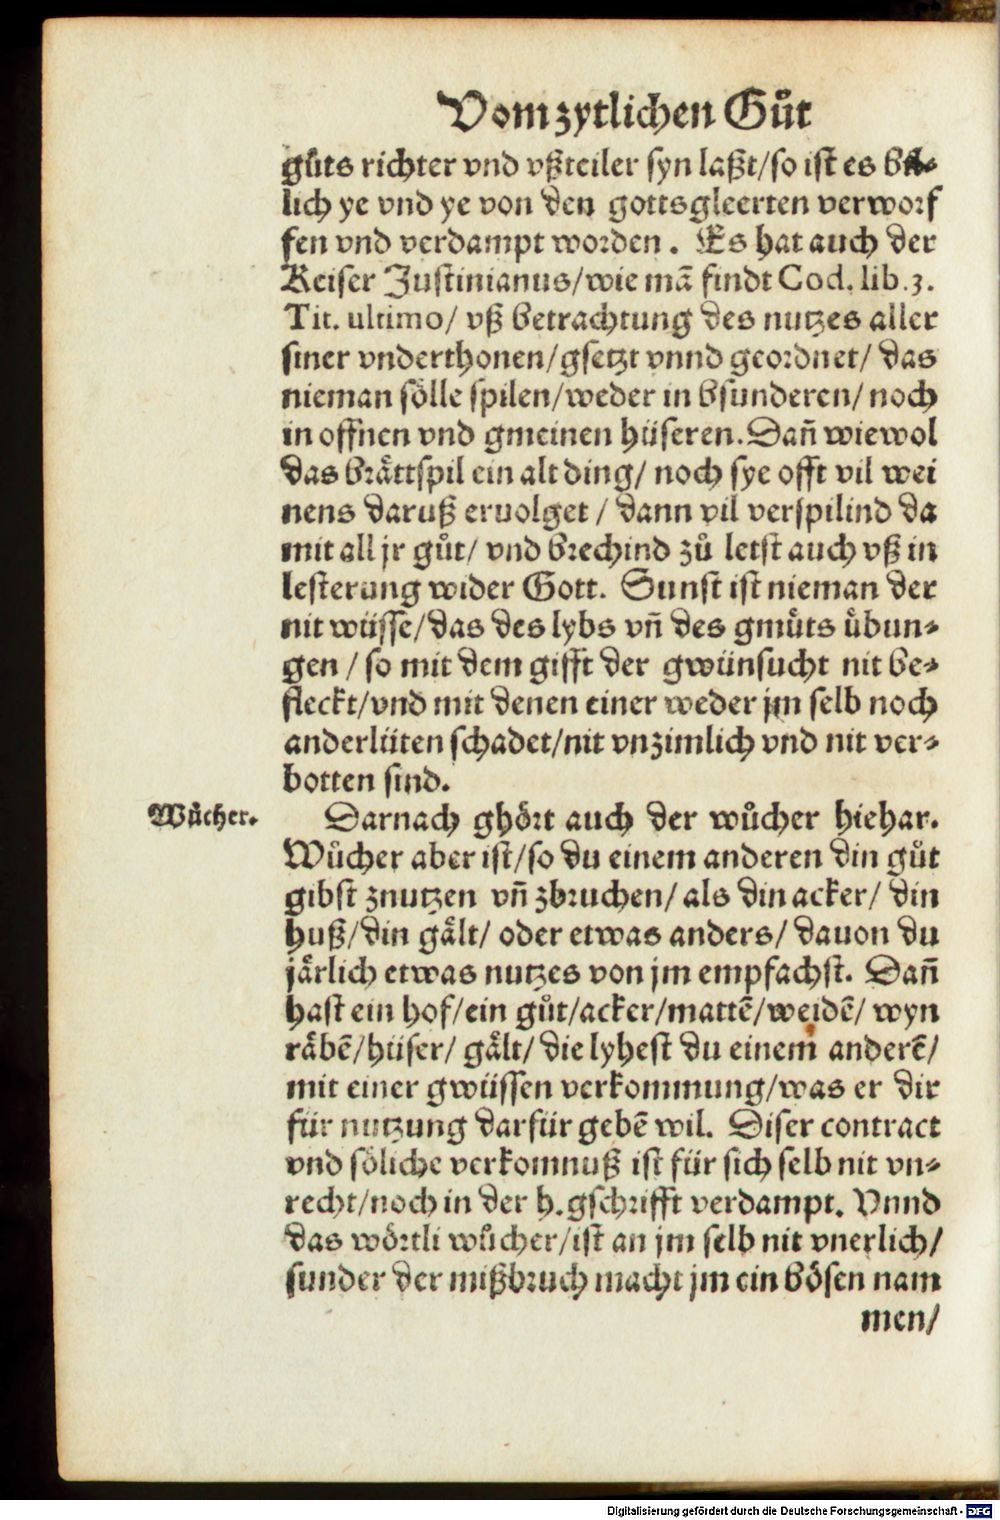 Vom zytlichen Guͦt
guͦts richter vnd vßteiler syn laßt/so ist es bil-
lich ye vnd ye von den gottsgleerten verworf
fen vnd verdampt worden. Es hat auch der
Keiser Justinianus/wie mā findt Cod. lib.3.
Tit. ultimo/ vß betrachtung des nutzes aller
siner vnderthonen/gsetzt vnnd geordnet/ das
nieman soͤlle spilen/weder in bsunderen/ noch
in offnen vnd gmeinen hüseren. Dañ wiewol
das braͤttspil ein alt ding/ noch sye offt vil wei
nens daruß eruolget / dann vil verspilind da
mit all jr guͦt/ vnd brechind zuͦ letst auch vß in
lesterung wider Gott. Sunst ist nieman der
nit wüsse/das des lybs vñ des gmuͤts uͤbun-
gen / so mit dem gifft der gwünsucht nit be-
fleckt/vnd mit denen einer weder jm selb noch
anderlüten schadet/nit vnzimlich vnd nit ver-
botten sind.
Wuͦcher.
Darnach ghoͤrt auch der wuͦcher hiehar.
Wuͦcher aber ist/so du einem anderen din guͦt
gibst znutzen vñ zbruchen/ als din acker/ din
huß/din gaͤlt/ oder etwas anders/ dauon du
jaͤrlich etwas nutzes von jm empfachst. Dañ
hast ein hof/ein guͦt/acker/mattē/weidē/ wyn
raͤbē/hüser/ gaͤlt/ die lyhest du einem anderē/
mit einer gwüssen verkommung/was er dir
für nutzung darfür gebē wil. Diser contract
vnd soͤliche verkomnuß ist für sich selb nit vn-
recht/noch in der h.gschrifft verdampt. Vnnd
das woͤrtli wuͦcher/ist an jm selb nit vnerlich/
sunder der mißbruch macht jm ein boͤsen nam
men/
Digitalisierung gefördert durch die Deutsche Forschungsgemeinschaft - DFG